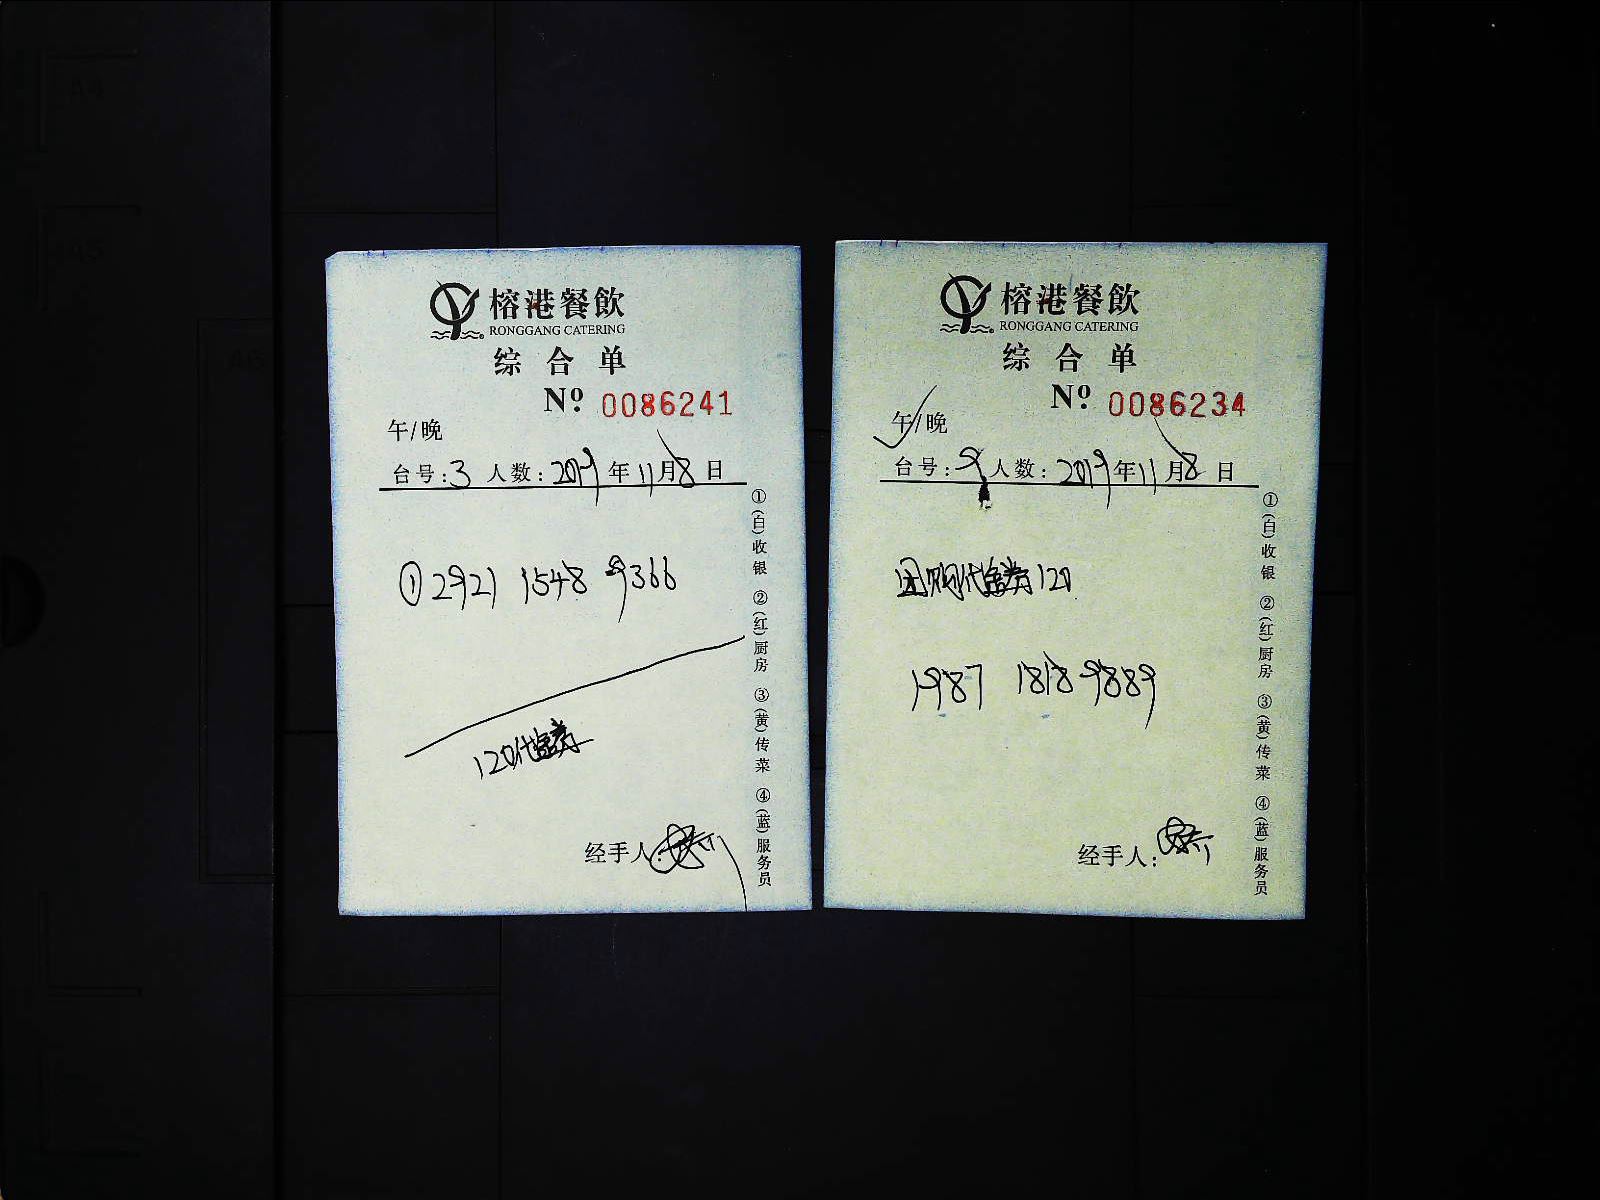 榕港餐飲
RONGGANG CATERING
综合单
Nº 0086241
午/晚
台号:3 人数:2019年11月8日
①2921 1548 9366
120代金券
经手人:
①(白)收银 ②(红)厨房 ③(黄)传菜 ④(蓝)服务员
榕港餐飲
RONGGANG CATERING
综合单
Nº 0086234
午/晚
台号:9 人数:2019年11月8日
团购代金券120
1987 1818 9889
经手人:
①(白)收银 ②(红)厨房 ③(黄)传菜 ④(蓝)服务员